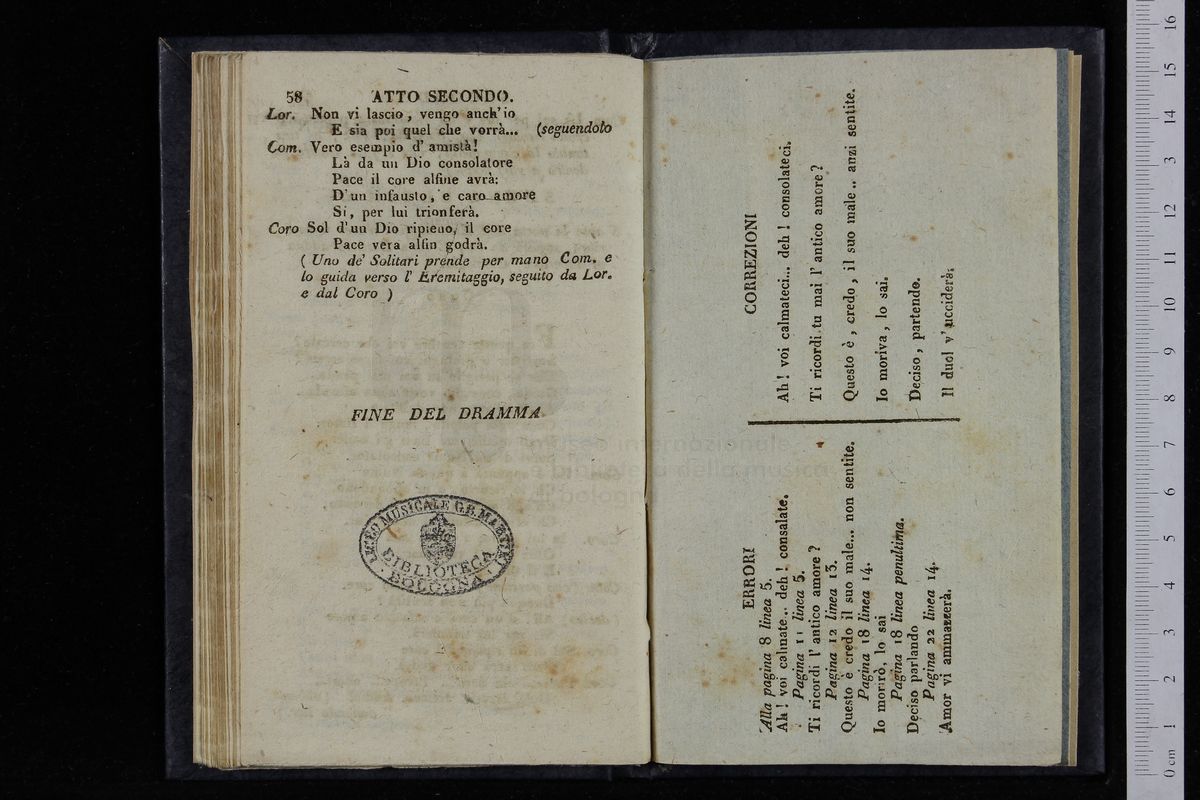 58 ATTO SECONDO.
Lor. Non vi lascio, vengo anch'io
E sia poi quel che vorrà... (seguendolo
Com. Vero esempio d' amistà!
Là da un Dio consolatore
Pace il core alfine avrà:
D'un infausto, e caro amore
Si, per lui trionferà.
Coro Sol d'un Dio ripieno, il core
Pace vera alfin godrà.
( Uno de' Solitari prende per mano Com. e
lo guida verso l' Eremitaggio, seguito da Lor.
e dal Coro )
FINE DEL DRAMMA
LICEO MUSICALE G.B. MARTINI
BIBLIOTECA
BOLOGNA
museo internazionale
e biblioteca della musica
di bologna
ERRORI
Alla pagina 8 linea 5.
Ah! voi calmate... deh! consalate.
Pagina 11 linea 5.
Ti ricordi l' antico amore?
Pagina 12 linea 13.
Questo è credo il suo male... non sentite.
Pagina 18 linea 14.
Io morirò, lo sai
Pagina 18 linea penultima.
Deciso parlando
Pagina 22 linea 14.
Amor vi ammazzerà.
CORREZIONI
Ah! voi calmateci... deh! consolateci.
Ti ricordi tu mai l' antico amore?
Questo è, credo, il suo male.. anzi sentite.
Io moriva, lo sai.
Deciso, partendo.
Il duol v' ucciderà;
0 cm 1 2 3 4 5 6 7 8 9 10 11 12 13 14 15 16